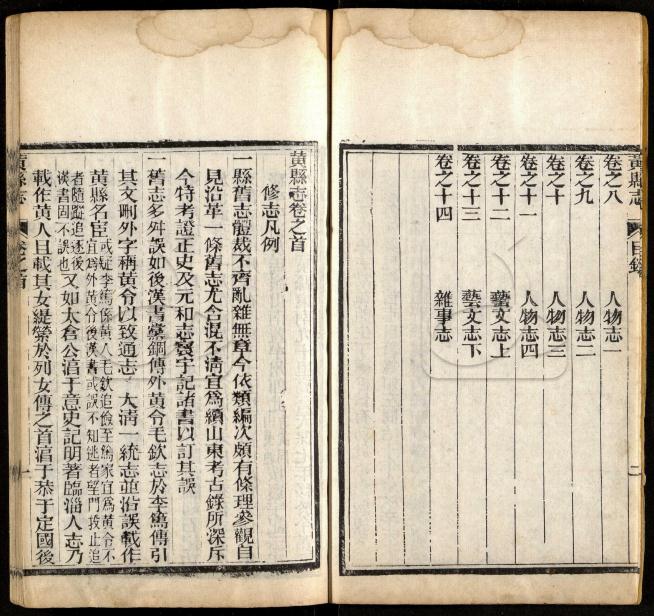 黃縣志
目錄
二
卷之八 人物志一
卷之九 人物志二
卷之十 人物志三
卷之十一 人物志四
卷之十二 藝文志上
卷之十三 藝文志下
卷之十四 雜事志
黃縣志卷之首
修志凡例
一縣舊志體裁不齊亂雜無章今依類編次頗有條理參觀自
見沿革一條舊志尤合混不淸宜爲續山東考古錄所深斥
今特考證正史及元和志寰宇記諸書以訂其誤
一舊志多舛誤如後漢書黨錮傳外黃令毛欽志於李篤傳引
其文刪外字稱黃令以致通志大淸一統志並沿誤載作
黃縣名臣或疑李篤係黃人毛欽追儉至篤家宜爲黃令不
宜爲外黃令後漢書或誤不知逃者望門投止追
者隨蹤追逐後
漢書固不誤也又如太倉公淳于意史記明著臨淄人志乃
載作黃人且載其女緹縈於列女傳之首淳于恭于定國後
黃縣志
卷之首
一